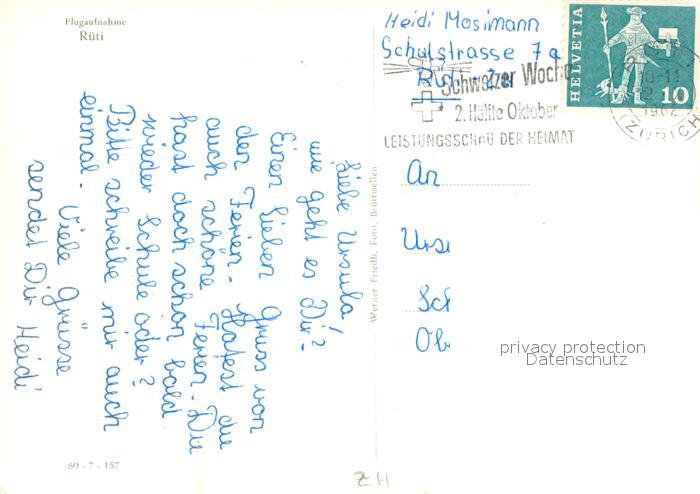 Flugaufnahme
Rüti
Liebe Ursula!
wie geht es Dir?
Einen lieben Gruss von
den Ferien. Hattest du
auch schöne Ferien. Du
hast doch schon bald
wieder Schule oder?
Bitte schreibe mir auch
einmal. Viele Grüsse
sendet Dir Heidi
60 - 7 - 157
Werner Friedli, Foto, Brüttisellen
Heidi Mosimann
Schulstrasse 7a
Rüti
Schweizer Woche
2. Hälfte Oktober
LEISTUNGSSCHAU DER HEIMAT
HELVETIA
10
1962
(ZÜRICH)
An
Urs
Sch
Ob
privacy protection
Datenschutz
ZH